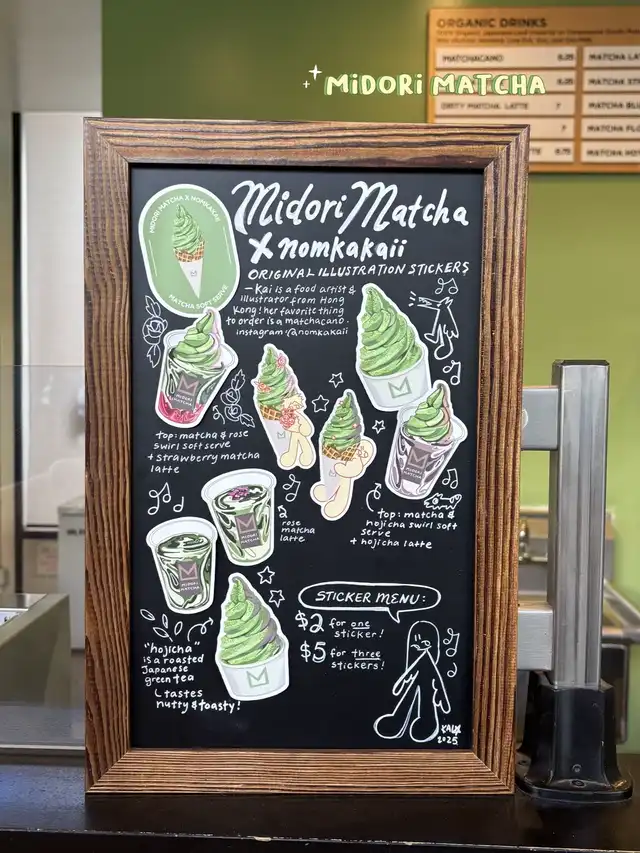 ORGANIC DRINKS
MATCHACANO 6.25
MATCHA LA
6.25
MATCHA STR
DIRTY MATCHA LATTE 7
MATCHA BLU
7
MATCHA FLO
6.75
MATCHA HO
MiDORi MATCHA
MIDORI MATCHA X NOMKAKAII
MATCHA SOFT SERVE
Midori Matcha
X nomkakaii
ORIGINAL ILLUSTRATION STICKERS
- Kai is a food artist &
illustrator from Hong
Kong! her favorite thing
to order is a matchacano -
instagram: @nomkakaii
MIDORI
MATCHA
top: matcha & rose
swirl soft serve
+ strawberry matcha
latte
rose
matcha
latte
top: matcha &
hojicha swirl soft
serve
+ hojicha latte
MIDORI
MATCHA
MIDORI
MATCHA
MIDORI
MATCHA
"hojicha"
is a roasted
Japanese
green tea
tastes
nutty & toasty!
STICKER MENU:
$2 for one
sticker!
$5 for three
stickers!
2025